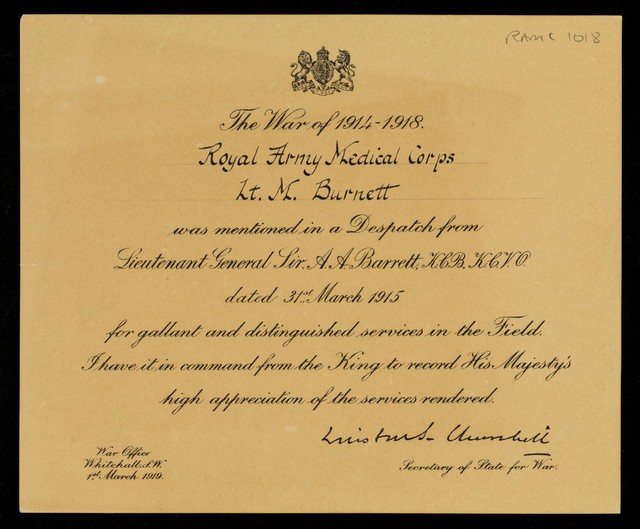 RAMC 1018
The War of 1914-1918.
Royal Army Medical Corps
Lt. M. Burnett
was mentioned in a Despatch from
Lieutenant General Sir A. A. Barrett, K.C.B. K.C.V.O.
dated 31st March 1915
for gallant and distinguished services in the Field.
I have it in command from the King to record His Majesty's
high appreciation of the services rendered.
Winston S. Churchill
War Office
Whitehall, S.W.
1st March 1919.
Secretary of State for War.